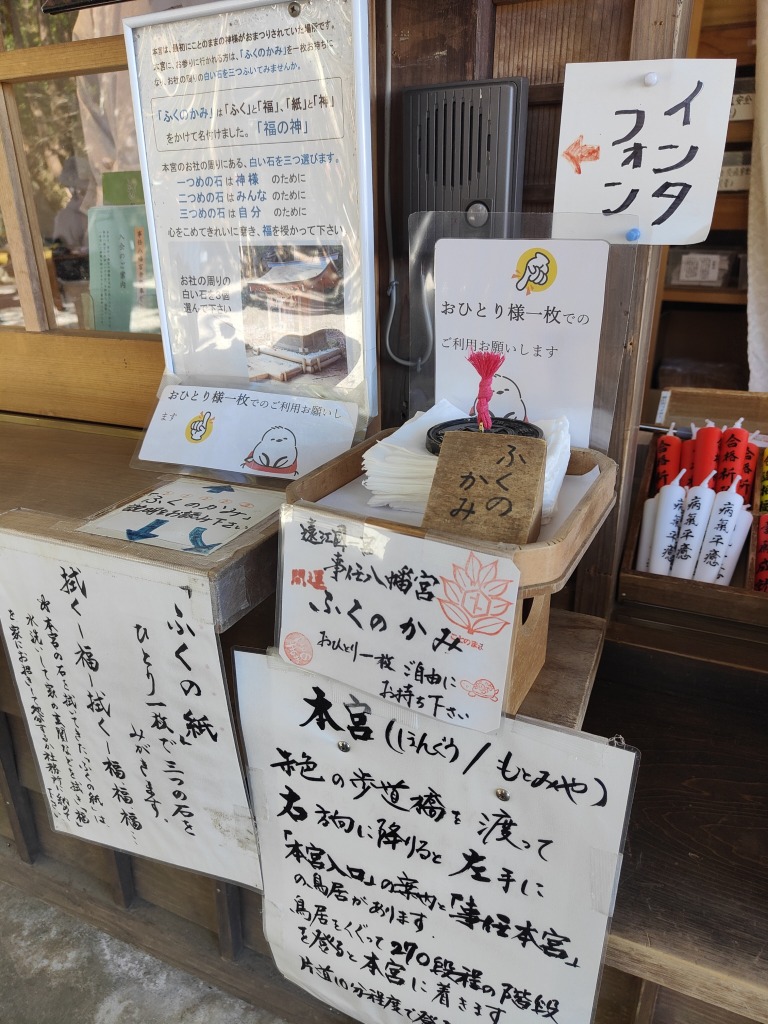 本宮は、最初にことのままの神様がおまつりされていた場所です。
本宮に、お参りに行かれる方は、「ふくのかみ」を一枚お持ちに
なり、お社の周りの白い石を三つふいてみませんか。
「ふくのかみ」は「ふく」と「福」、「紙」と「神」
をかけて名付けました。「福の神」
本宮のお社の周りにある、白い石を三つ選びます。
一つめの石は神様 のために
二つめの石はみんなのために
三つめの石は自分 のために
心をこめてきれいに磨き、福を授かって下さい
お社の周りの
白い石を3個
選んで下さい
インタ
フォン
おひとり様一枚での
ご利用お願いします
おひとり様一枚でのご利用お願いし
ます
ふくの
かみ
「ふくのかみ」
遠江国一宮
開運 事任八幡宮
ふくのかみ
おひとり一枚ご自由に
お持ち下さい
ことのまま
「ふくの紙」
ひとり一枚で三つの石を
みがきます。
拭く―福―拭く―福、福、福…
本宮(ほんぐう/もとみや)
赤色の歩道橋を渡って
右方向に降りると左手に
「本宮入口」の案内と「事任本宮」
の鳥居があります。
鳥居をくぐって270段程の階段
を登ると本宮に着きます
片道10分程度で
合格祈
合格祈
合格祈
病気平癒
病気平癒
病気平癒